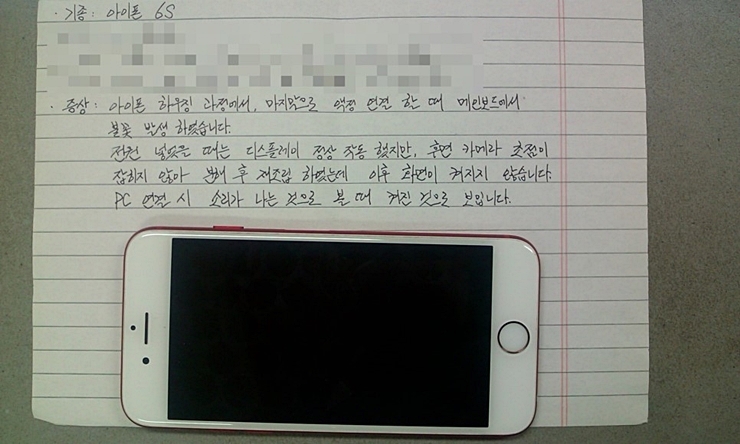 · 기종 : 아이폰 6S
· 증상 : 아이폰 하우징 과정에서, 마지막으로 액정 연결 할 때 메인보드에서
불꽃 발생 하였습니다.
전원 넣었을 때는 디스플레이 정상 작동 했지만, 후면 카메라 초점이
잡히지 않아 분해 후 재조립 하였는데 이후 화면이 켜지지 않습니다.
PC 연결 시 소리가 나는 것으로 볼 때 켜진 것으로 보입니다.